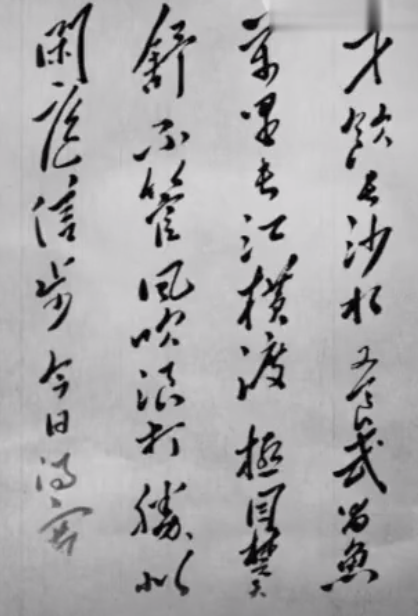 才饮长沙水又食武昌鱼
万里长江横渡极目楚天
舒不管风吹浪打胜似
闲庭信步今日得宽